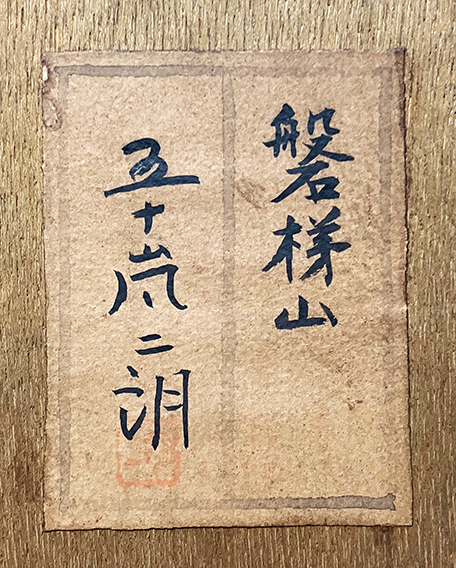 磐梯山
五十嵐二朗